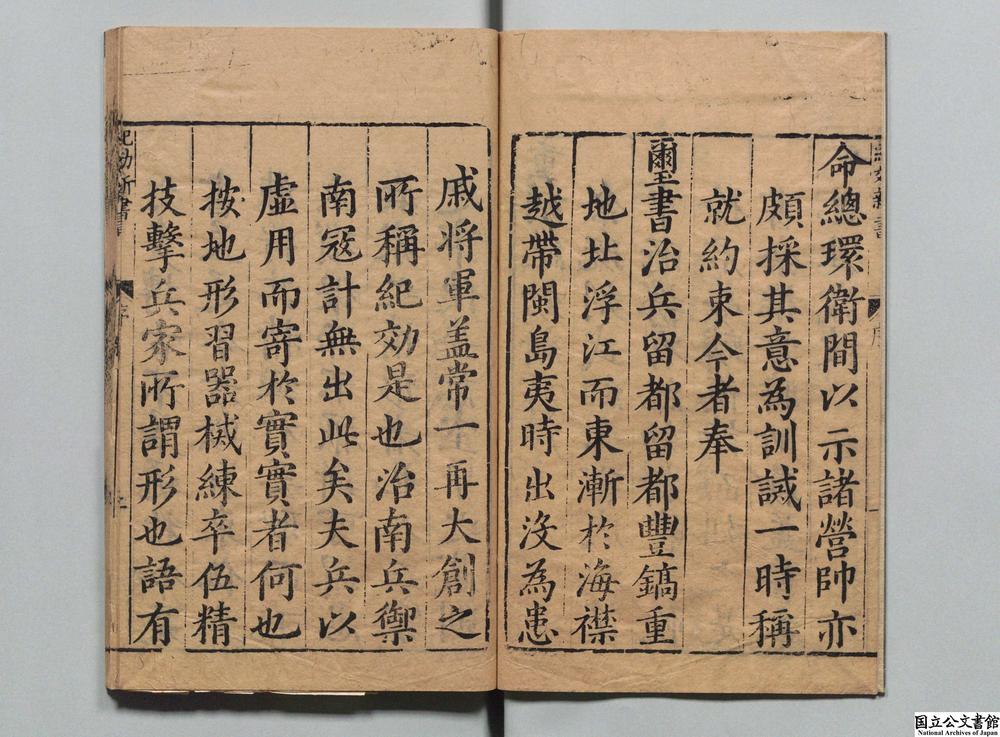 命總環衛間以示諸營帥亦
頗採其意為訓誡一時稱
就約束今者奉
璽書治兵留都留都豐鎬重
地北浮江而東漸於海襟
越帶閩島夷時出沒為患
戚將軍盖常一再大創之
所稱紀効是也治南兵禦
南冦計無出此矣夫兵以
虛用而寄於實實者何也
按地形習器械練卒伍精
技擊兵家所謂形也語有
紀効新書
序
国立公文書館
National Archives of Japan